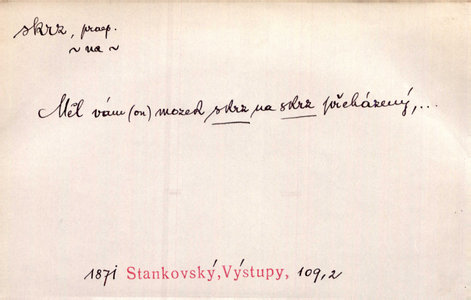 skrz, praep.
~ na ~
Měl vám (on) mozek skrz na skrz přecházený,...
1871 Stankovský, Výstupy, 109,2